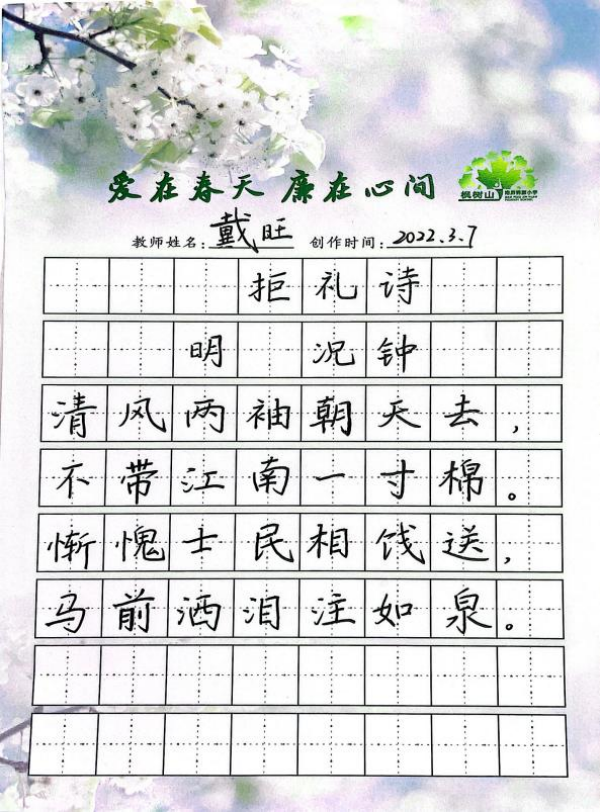 爱在春天 廉在心间
枫树山
教师姓名：戴旺 创作时间：2022.3.7
拒礼诗
明 况钟
清风两袖朝天去，
不带江南一寸棉。
惭愧士民相饯送，
马前洒泪注如泉。